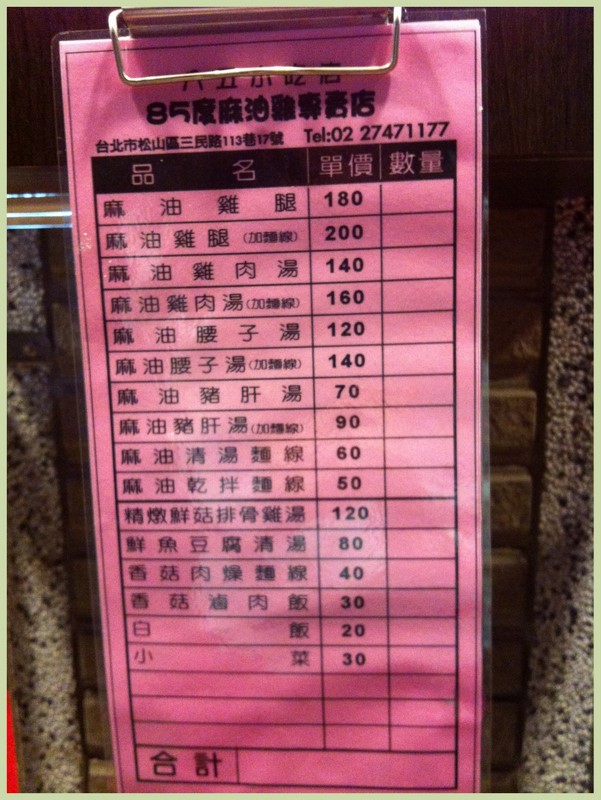 八五小吃店
85度麻油雞專賣店
台北市松山區三民路113巷17號 Tel:02 27471177
品名 單價 數量
麻油雞腿 180
麻油雞腿(加麵線) 200
麻油雞肉湯 140
麻油雞肉湯(加麵線) 160
麻油腰子湯 120
麻油腰子湯(加麵線) 140
麻油豬肝湯 70
麻油豬肝湯(加麵線) 90
麻油清湯麵線 60
麻油乾拌麵線 50
精燉鮮菇排骨雞湯 120
鮮魚豆腐清湯 80
香菇肉燥麵線 40
香菇滷肉飯 30
白飯 20
小菜 30
合計